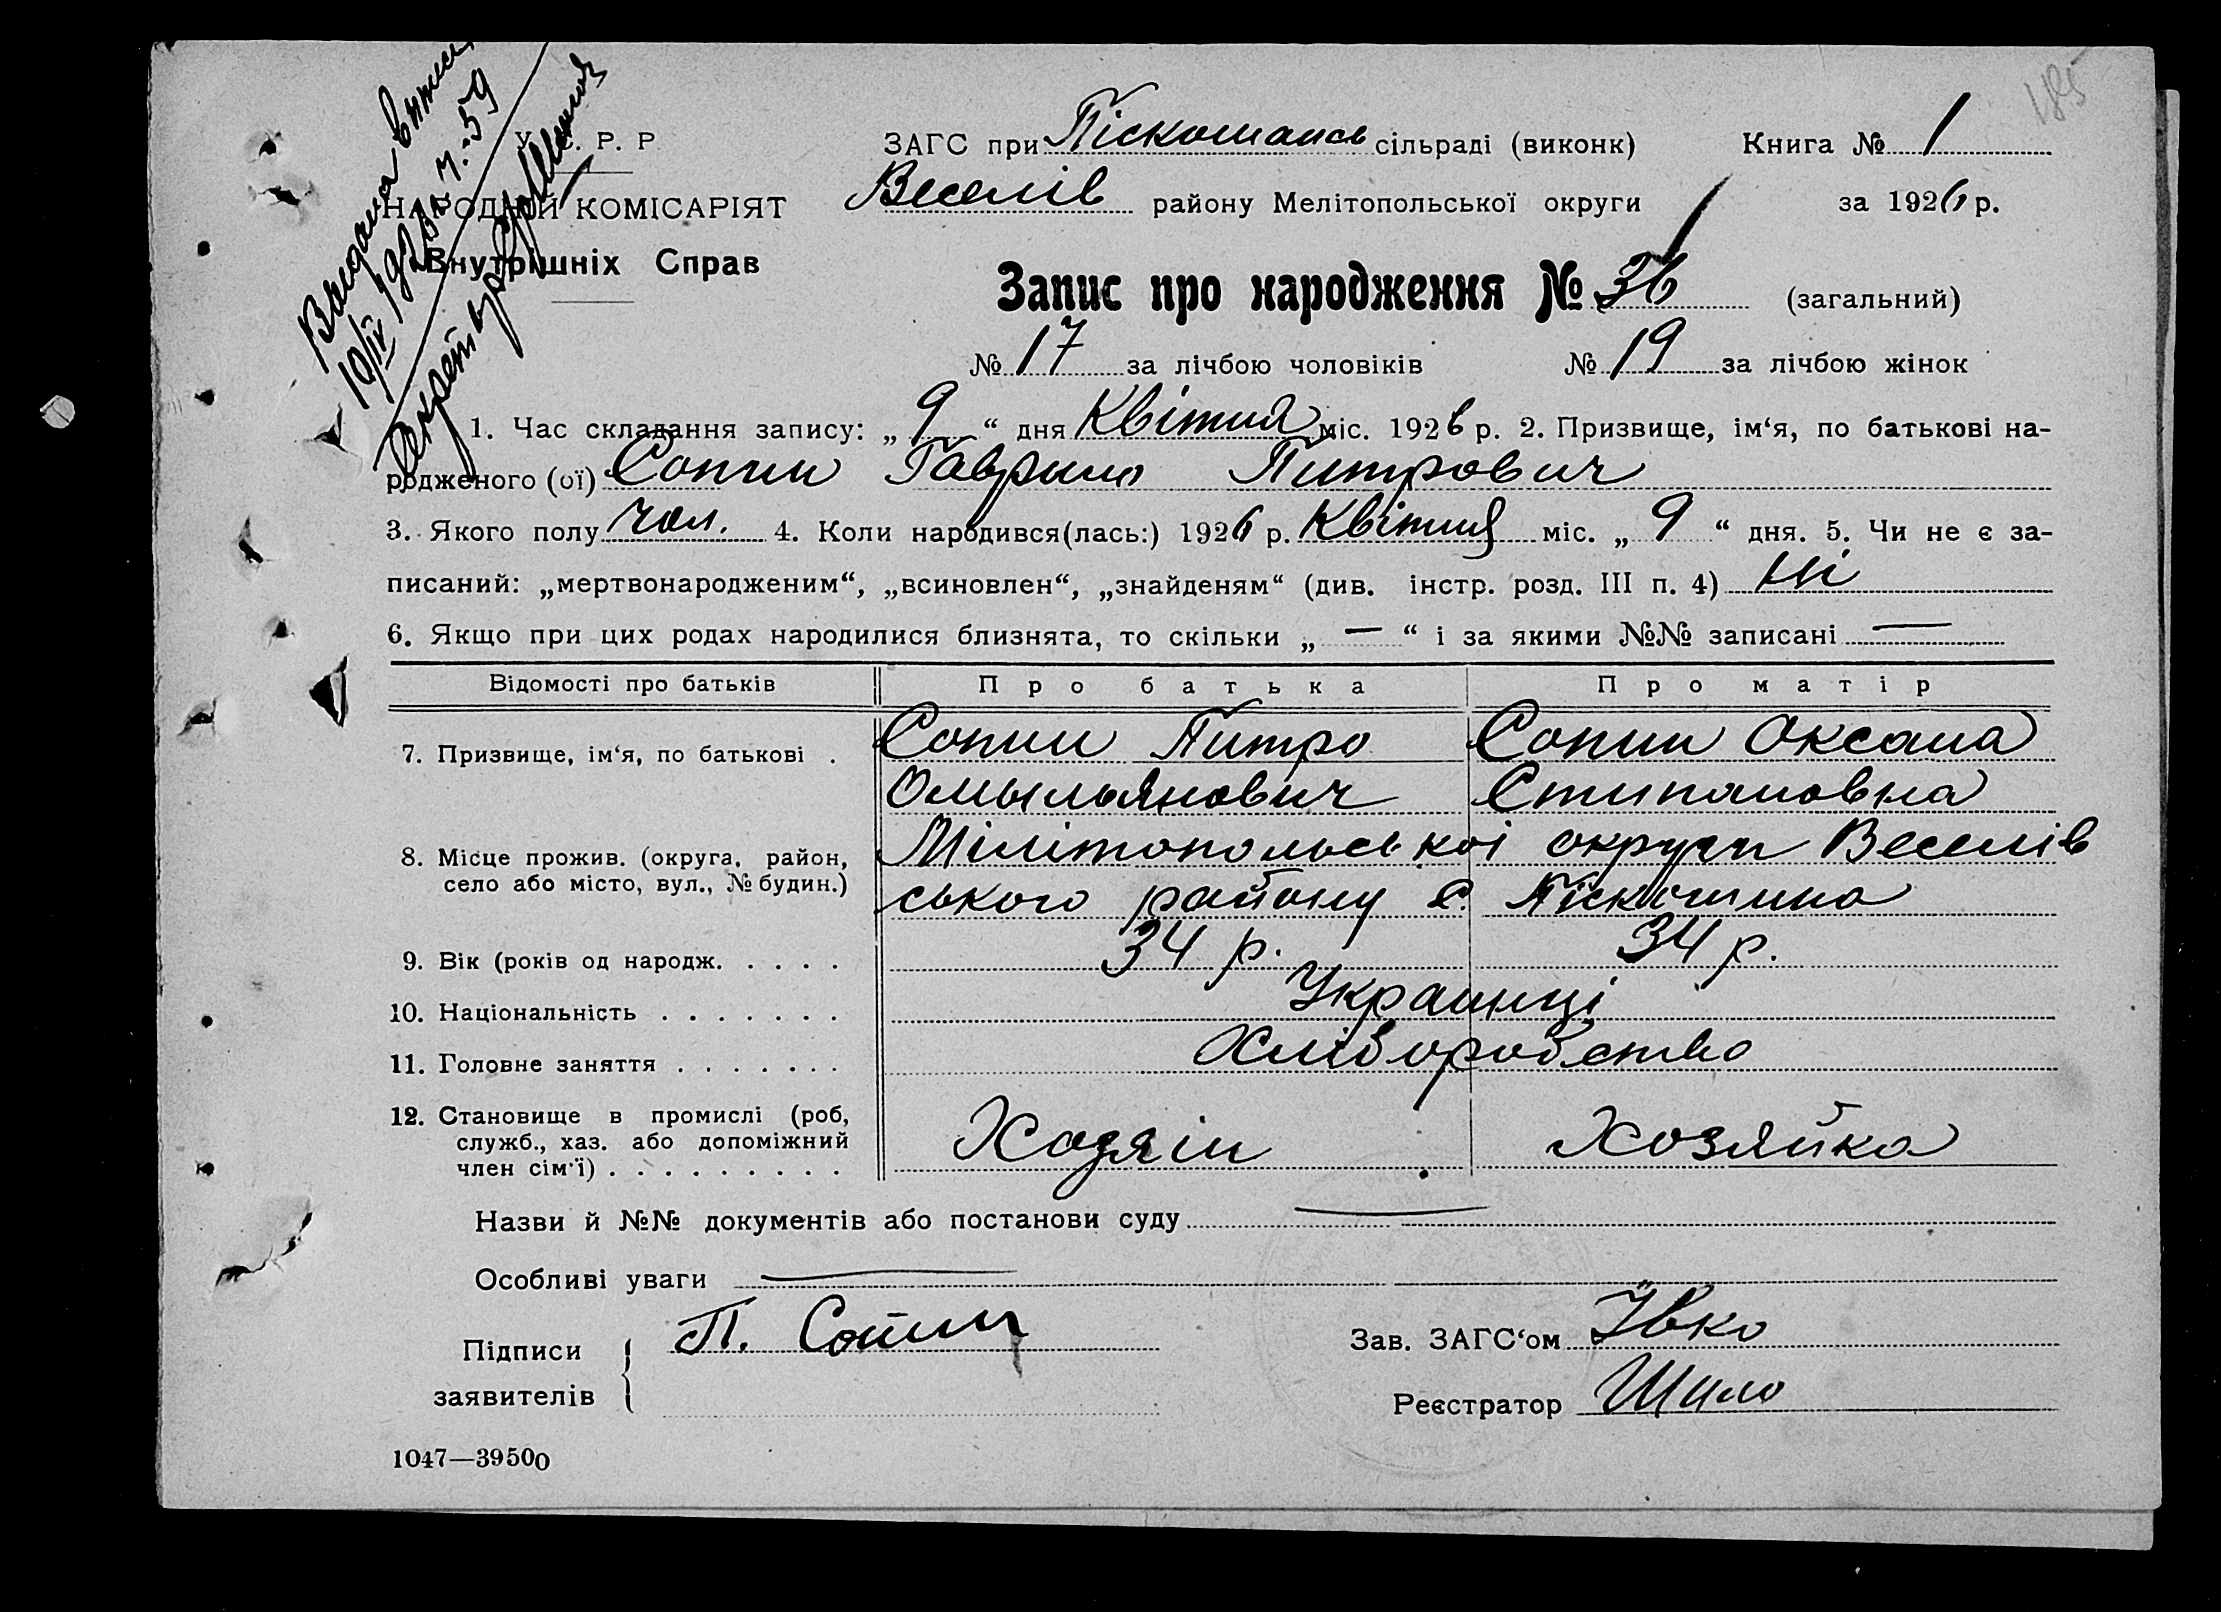 185
Видана випис
19/IV 1926 р. ч. 59
Секретар
У. С. Р. Р.
НАРОДНІЙ КОМІСАРІЯТ
Внутрішніх Справ
ЗАГС при Піскошинсь сільраді (виконк) Книга № 1
Веселів району Мелітопольської округи за 1926 р.
Запис про народження № 36 (загальний)
№ 17 за лічбою чоловіків № 19 за лічбою жінок
1. Час складання запису: „ 9 “ дня Квітня міс. 1926 р. 2. Призвище, ім‘я, по батькові на-
родженого (ої) Сопин Гаврило Питрович
3. Якого полу чол. 4. Коли народився(лась:) 1926 р. Квітня міс. „ 9 “ дня. 5. Чи не є за-
писаний: „мертвонародженим“, „всиновлен“, „знайденям“ (див. інстр. розд. III п. 4) ні
6. Якщо при цих родах народилися близнята, то скільки „ — “ і за якими №№ записані —
Відомості про батьків Про батька Про матір
7. Призвище, ім‘я, по батькові . Сопин Питро Сопин Оксана
Омыльянович Стипановна
8. Місце прожив. (округа, район, село або місто, вул., № будин.) Мілітопольської округи Веселів
ського району с. Піскошино
9. Вік (років од народж. . . . . 34 р. 34 р.
10. Національність . . . . . . . Украинці
11. Головне заняття . . . . . . . Хліборобство
12. Становище в промислі (роб, служб., хаз. або допоміжний член сім‘ї) . . . . . . . . . Хозяін Хозяйка
Назви й №№ документів або постанови суду —
Особливі уваги —
Підписи заявителів П. Сопин
Зав. ЗАГС‘ом Ївко
Реєстратор Шило
1047—39500